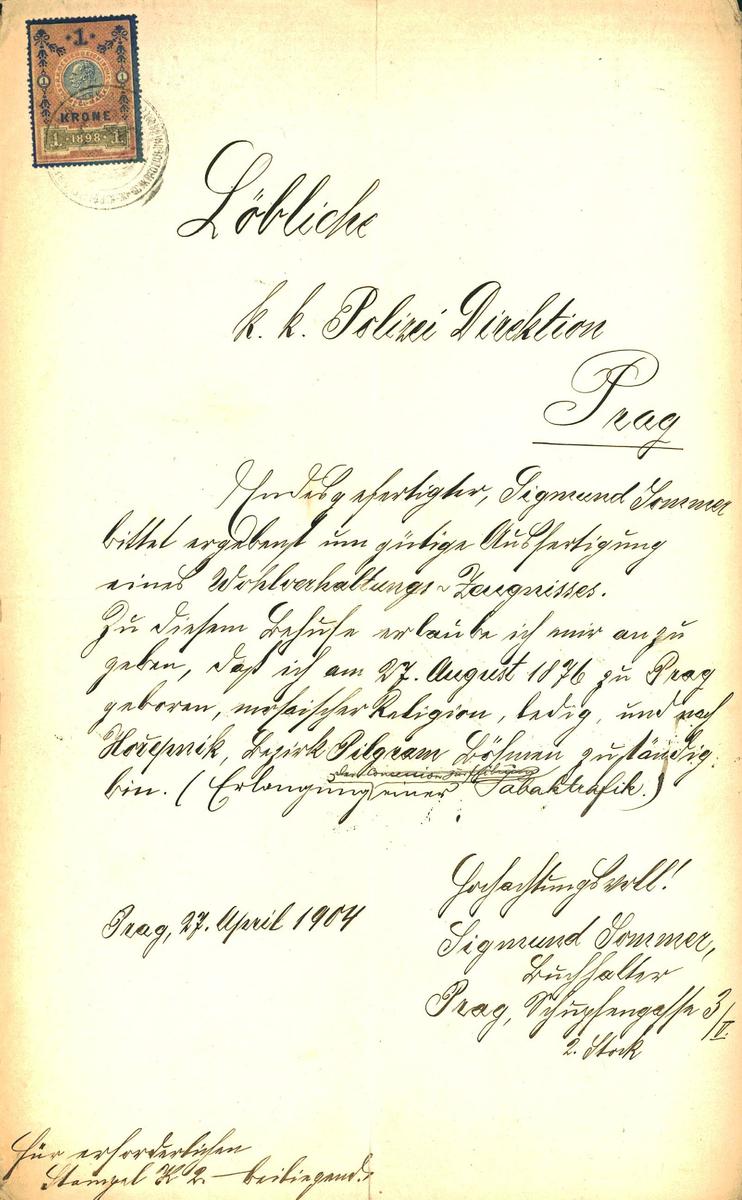 1
KRONE
1 1898 1
Löbliche
k. k. Polizei Direktion
Prag
Endesgefertigter, Sigmund Sommer
bittet ergebenst um gütige Ausfertigung
eines Wohlverhaltungs-Zeugnisses.
Zu diesem Behufe erlaube ich mir anzu
geben, daß ich am 27. August 1876 zu Prag
geboren, mosaischer Religion, ledig, und nach
Hořepnik, Bezirk Pilgram Böhmen zuständig
bin. (Erlangung einer Tabaktrafik.)
Prag, 27. April 1904
Hochachtungsvoll!
Sigmund Sommer,
Buchhalter
Prag, Stupfengasse 3/V.
2. Stock
Für erforderlichen
Stempel K 2.— beiliegend.